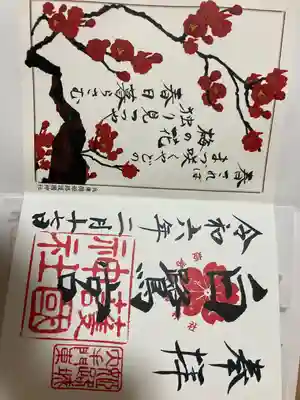 春されば
まづ咲くやどの
梅の花
独り見つつや
春日暮らさむ
奉拝
白鷺宮
護國神社
令和六年二月十七日